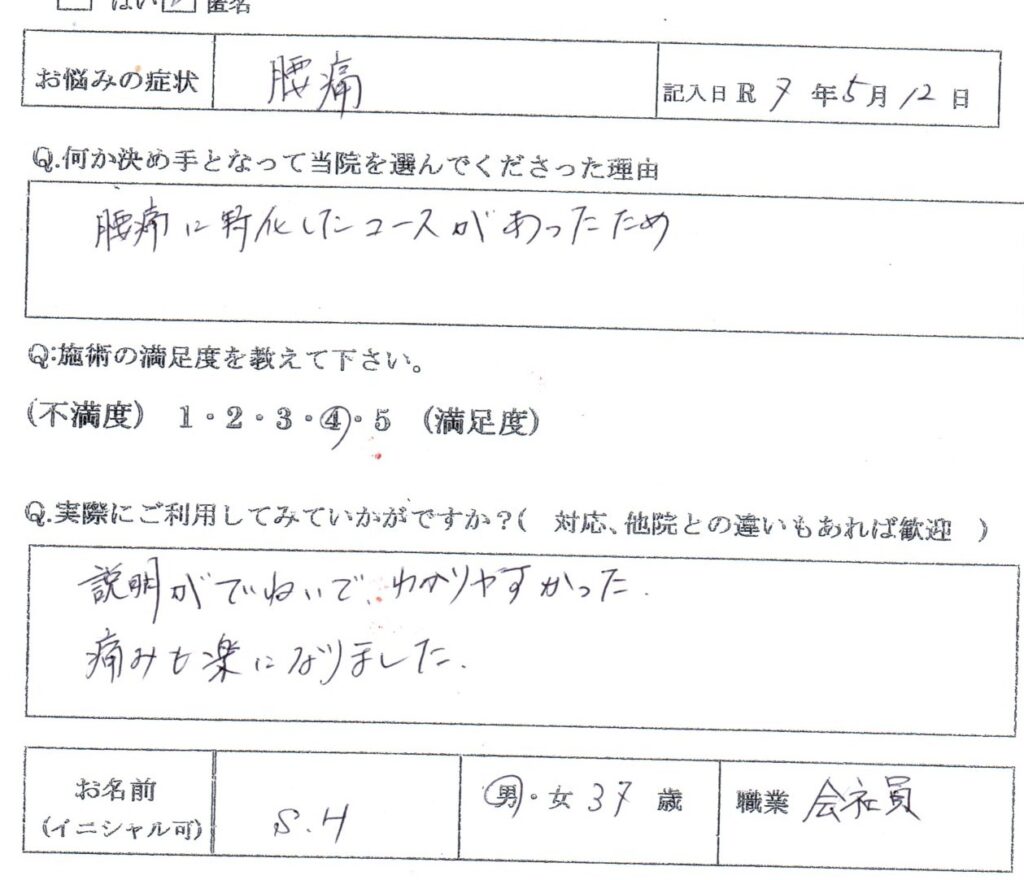 はい 匿名
お悩みの症状 腰痛 記入日 R 7 年 5 月 12 日
Q.何か決め手となって当院を選んでくださった理由
腰痛に特化したコースがあったため
Q:施術の満足度を教えて下さい。
(不満度) 1・2・3・④・5 (満足度)
Q.実際にご利用してみていかがですか?( 対応、他院との違いもあれば歓迎 )
説明がていねいで、わかりやすかった.
痛みも楽になりました.
お名前 (イニシャル可) S.H 男・女 37 歳 職業 会社員